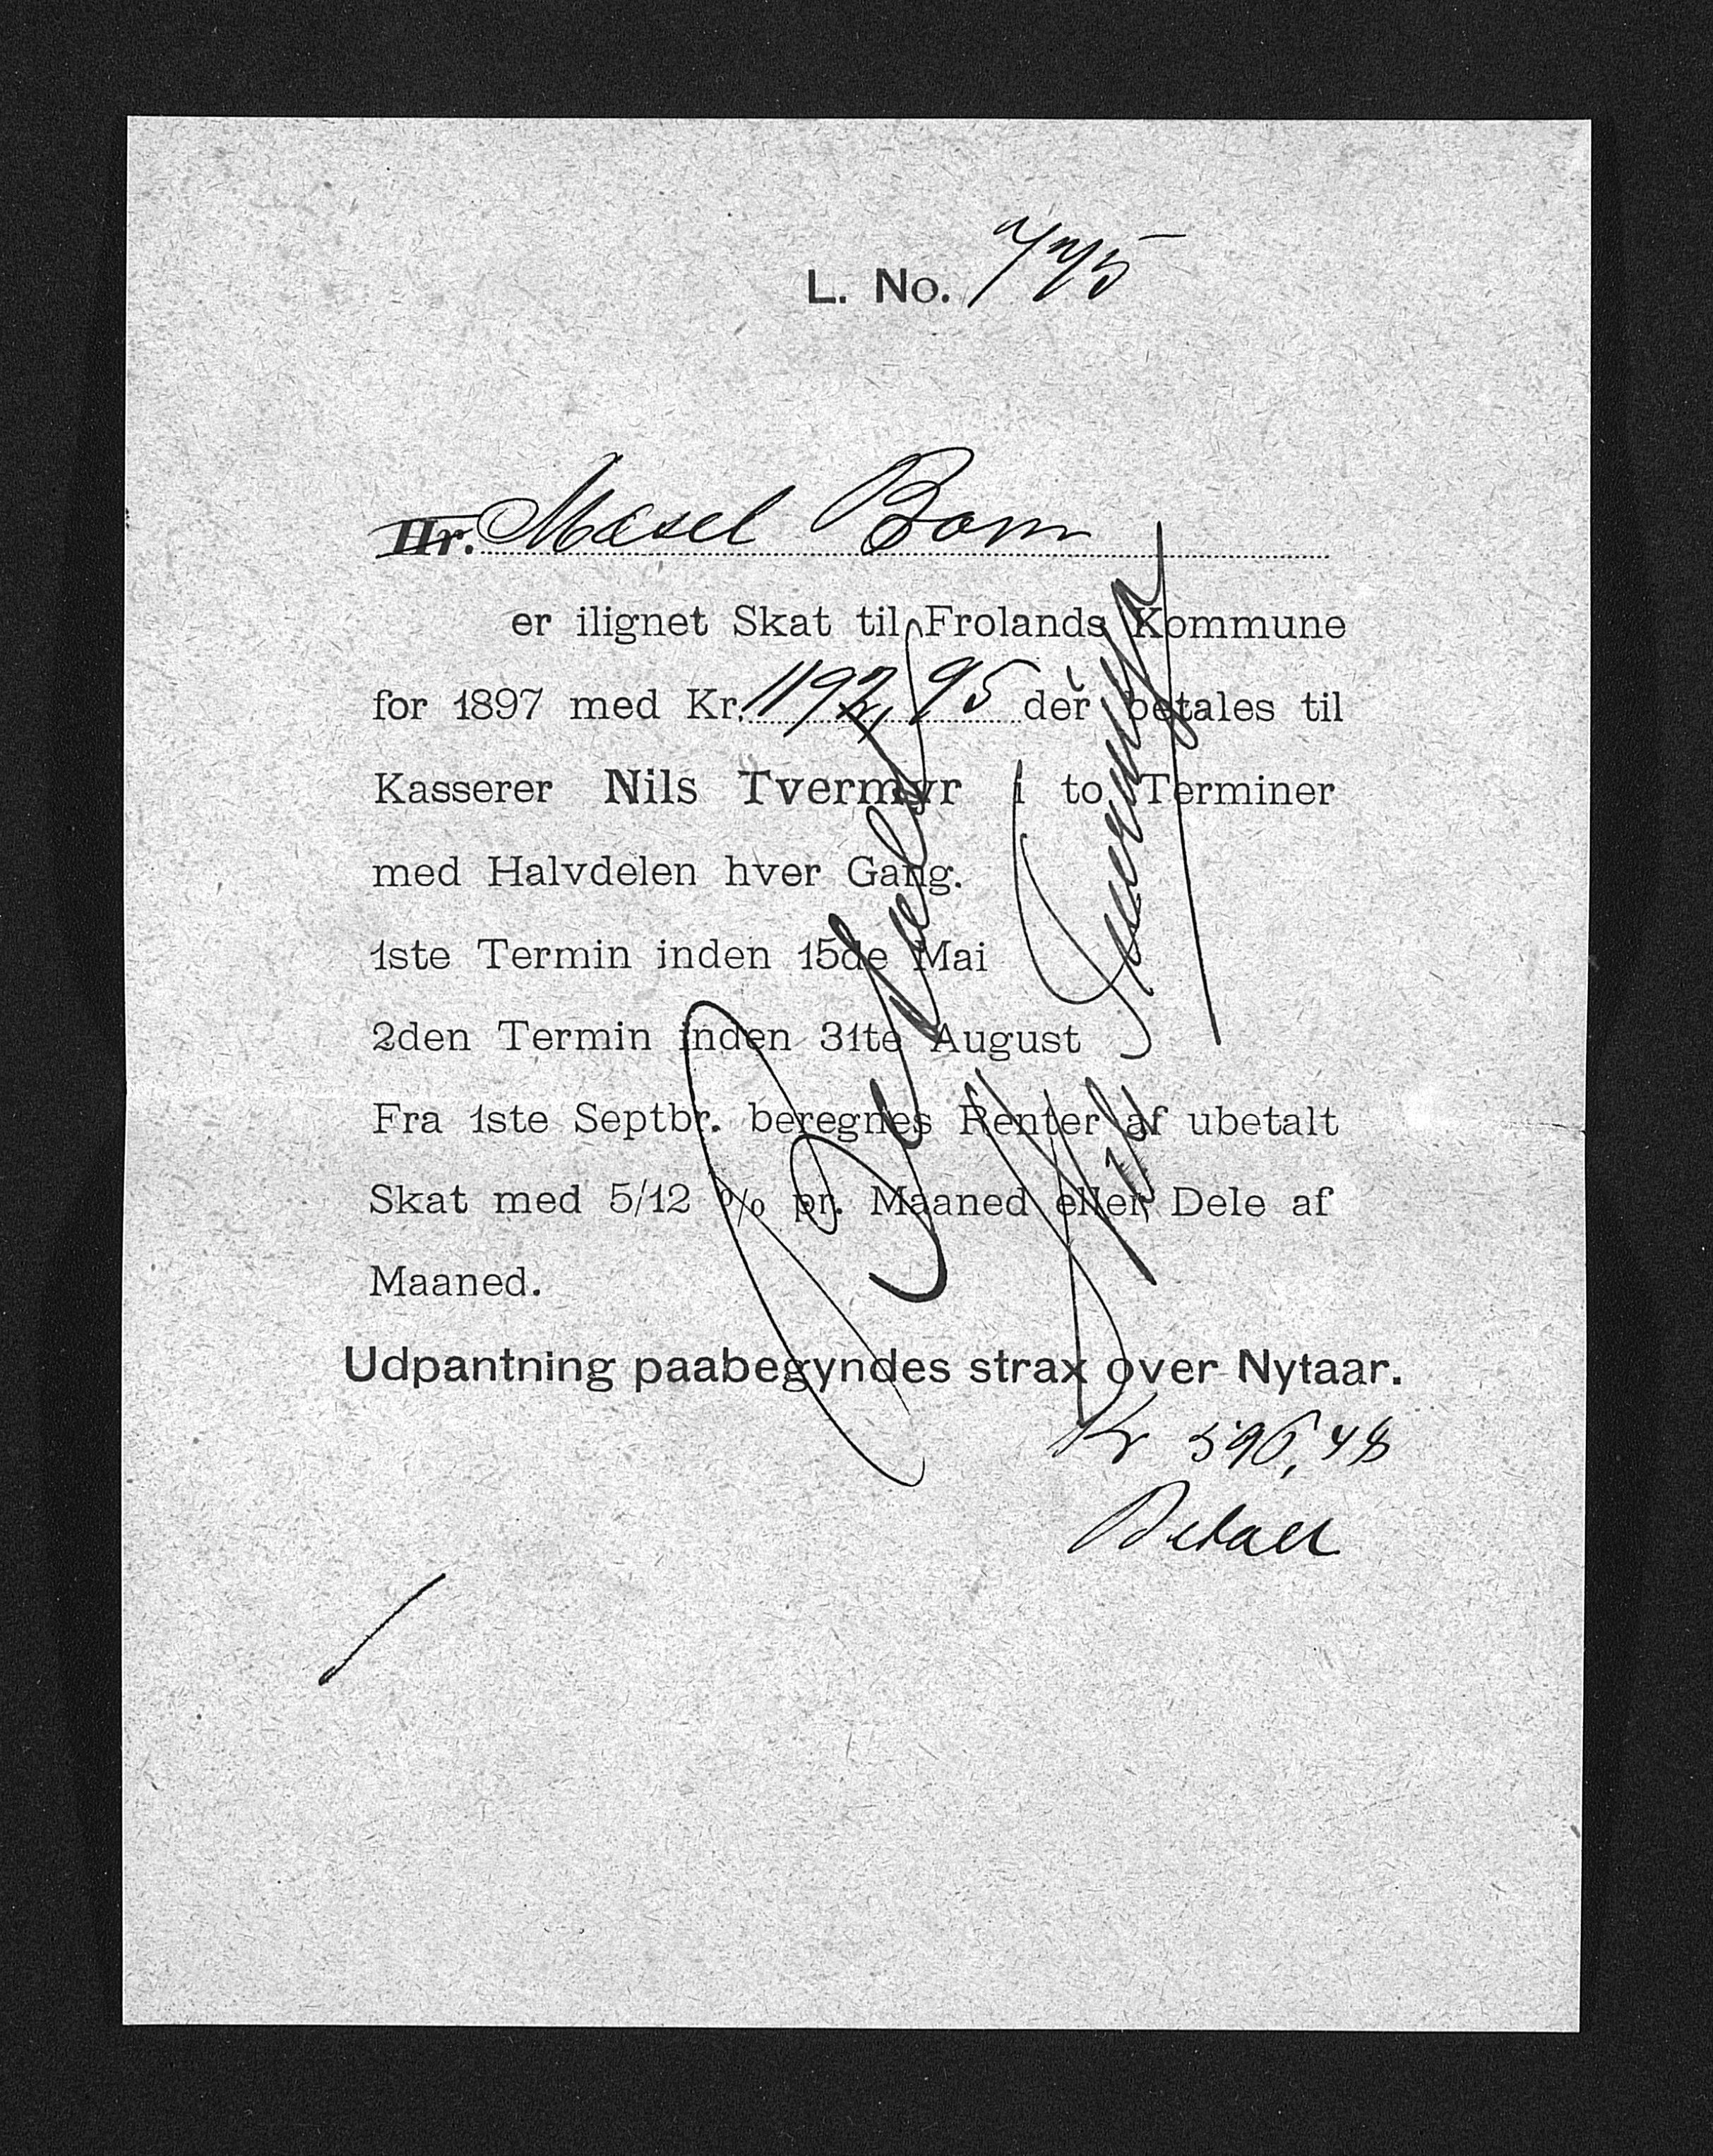 L. No. 775
Hr. Mæsel Bom
er ilignet Skat til Frolands Kommune
for 1897 med Kr. 1192,95 der betales til
Kasserer Nils Tvermyr i to Terminer
med Halvdelen hver Gang.
1ste Termin inden 15de Mai
2den Termin inden 31te August
Fra 1ste Septbr. beregnes Renter af ubetalt
Skat med 5/12 % pr. Maaned eller Dele af
Maaned.
Udpantning paabegyndes strax over Nytaar.
Kr 596,48
Betalt
Betalt
Nils Tvermyr